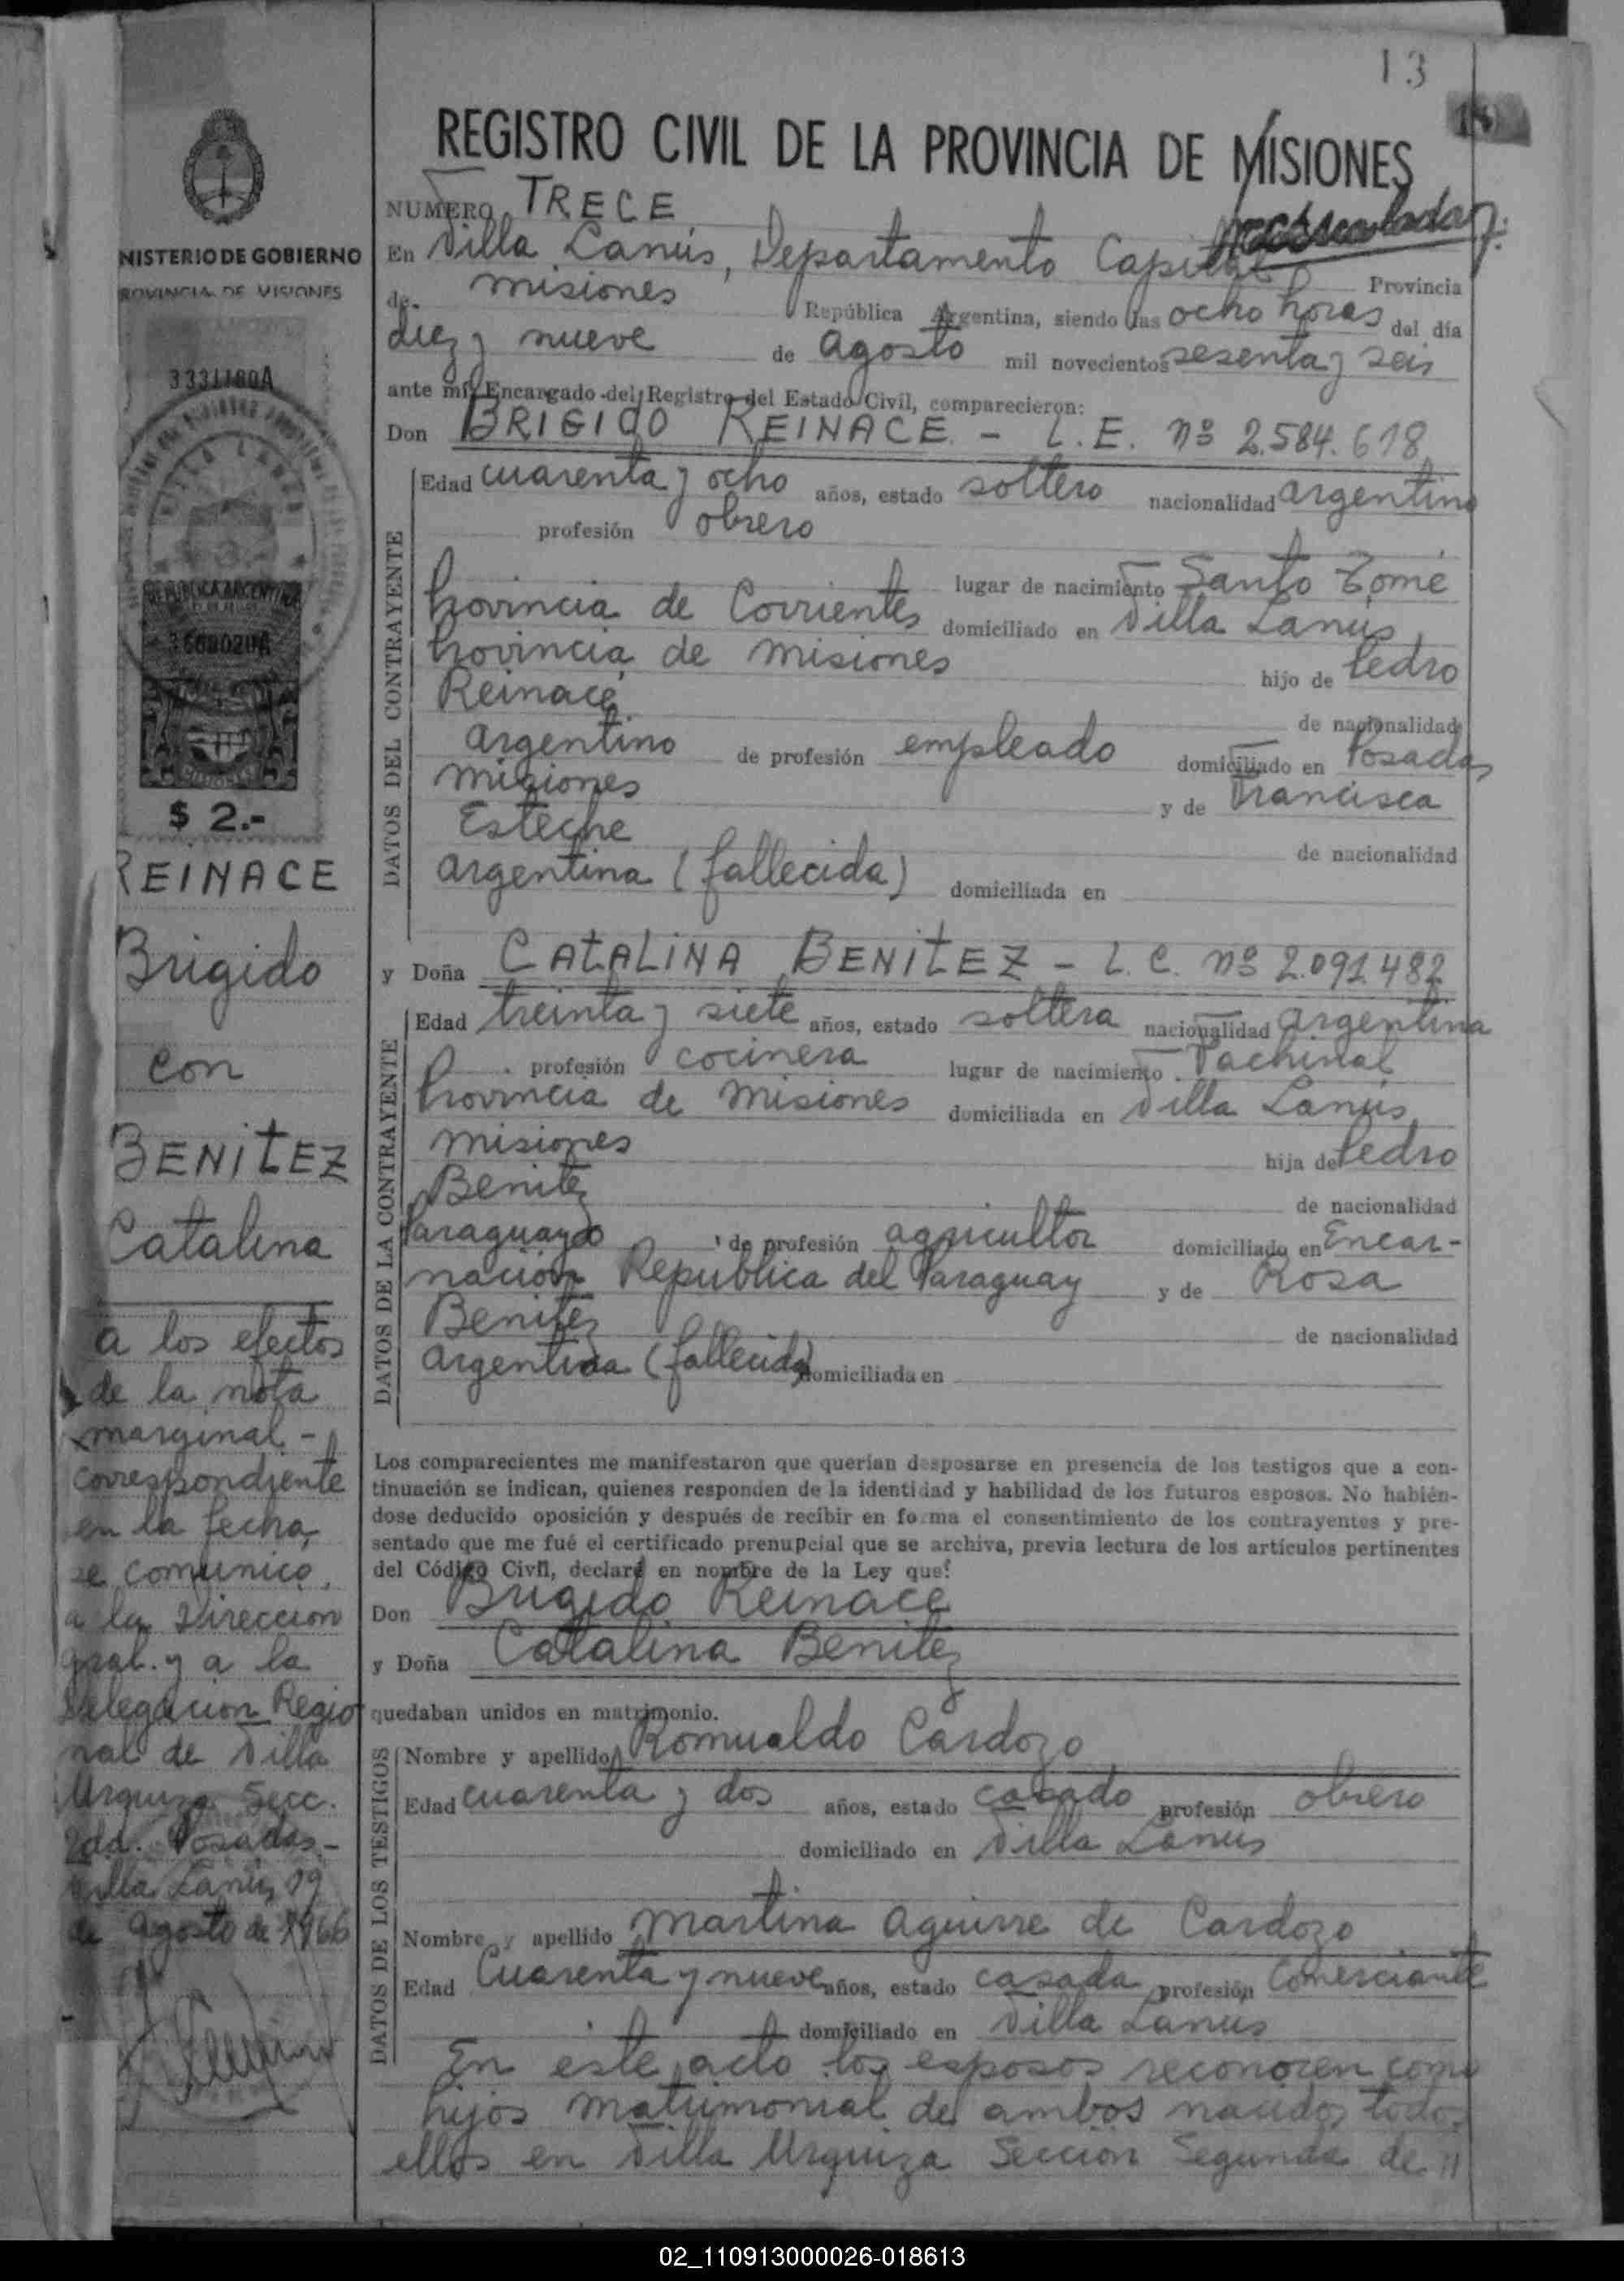 13
REGISTRO CIVIL DE LA PROVINCIA DE MISIONES
NUMERO TRECE
En Villa Lanús, Departamento Capital Provincia
de misiones República Argentina, siendo las ocho horas del día
diez y nueve de Agosto mil novecientos sesenta y seis
ante mí Encargado del Registro del Estado Civil, comparecieron:
Don BRIGIDO REINACE. - L.E. nº 2.584.618
DATOS DEL CONTRAYENTE
Edad cuarenta y ocho años, estado soltero nacionalidad argentino
profesión obrero
lugar de nacimiento Santo Tomé
Provincia de Corrientes domiciliado en Villa Lanús,
Provincia de misiones hijo de Pedro
Reinace, de nacionalidad
argentino de profesión empleado domiciliado en Posadas
misiones y de Francisca
Esteche de nacionalidad
argentina (fallecida) domiciliada en
y Doña CATALINA BENITEZ - L.C. nº 2.091.482
DATOS DE LA CONTRAYENTE
Edad treinta y siete años, estado soltera nacionalidad argentina
profesión cocinera lugar de nacimiento Pachinal
Provincia de Misiones domiciliada en Villa Lanús,
misiones hija de Pedro
Benitez de nacionalidad
Paraguayo de profesión agricultor domiciliado en Encar-
nación Republica del Paraguay y de Rosa
Benitez de nacionalidad
argentina (fallecida) domiciliada en
Los comparecientes me manifestaron que querían desposarse en presencia de los testigos que a con-
tinuación se indican, quienes responden de la identidad y habilidad de los futuros esposos. No habién-
dose deducido oposición y después de recibir en forma el consentimiento de los contrayentes y pre-
sentado que me fué el certificado prenupcial que se archiva, previa lectura de los artículos pertinentes
del Código Civil, declaré en nombre de la Ley que:
Don Brigido Reinace
y Doña Catalina Benitez
quedaban unidos en matrimonio.
DATOS DE LOS TESTIGOS
Nombre y apellido Romualdo Cardozo
Edad cuarenta y dos años, estado casado profesión obrero
domiciliado en Villa Lanús
Nombre y apellido Martina Aguirre de Cardozo
Edad Cuarenta y nueve años, estado casada profesión Comerciante
domiciliado en Villa Lanus
En este acto los esposos reconocen como
hijos matrimonial de ambos nacidos todos
ellos en Villa Urquiza Sección Segunda de //
NISTERIO DE GOBIERNO
ROVINCIA DE MISIONES
3331180A
REPUBLICA ARGENTINA
MISIONES
$ 2.-
REINACE
Brigido
con
BENITEZ
Catalina
a los efectos
de la nota
marginal -
correspondiente
en la fecha,
se comunicó,
a la Direccion
Gral. y a la
Delegacion Regio
nal de Villa
Urquiza Secc.
2da. Posadas.-
Villa Lanús, 19
de agosto de 1966
02_110913000026-018613